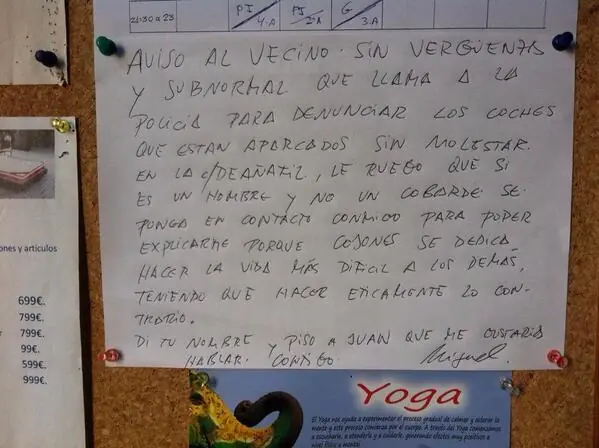 21:30 a 23
PI
4-A
PI
2-A
G
3-A
AVISO AL VECINO SIN VERGÜENZA
Y SUBNORMAL QUE LLAMA A LA
POLICÍA PARA DENUNCIAR LOS COCHES
QUE ESTAN APARCADOS SIN MOLESTAR.
EN LA C/DEAÑATIL, LE RUEGO QUE SI
ES UN HOMBRE Y NO UN COBARDE SE
PONGA EN CONTACTO CONMIGO PARA PODER
EXPLICARME PORQUE COJONES SE DEDICA
HACER LA VIDA MÁS DIFICIL A LOS DEMAS,
TENIENDO QUE HACER ETICAMENTE LO CON-
TRARIO.
DI TU NOMBRE Y PISO A JUAN QUE ME GUSTARIA
HABLAR CONTIGO. Miguel.
ones y articulos
699€.
799€.
799€.
99€.
599€.
999€.
Yoga
El Yoga nos ayuda a experimentar el proceso gradual de calmar y aclarar la
mente y este proceso comienza por el cuerpo. A través del Yoga comenzamos
a escucharlo, a atenderlo y a cuidarlo, generando efectos muy positivos a
nivel físico y mental.